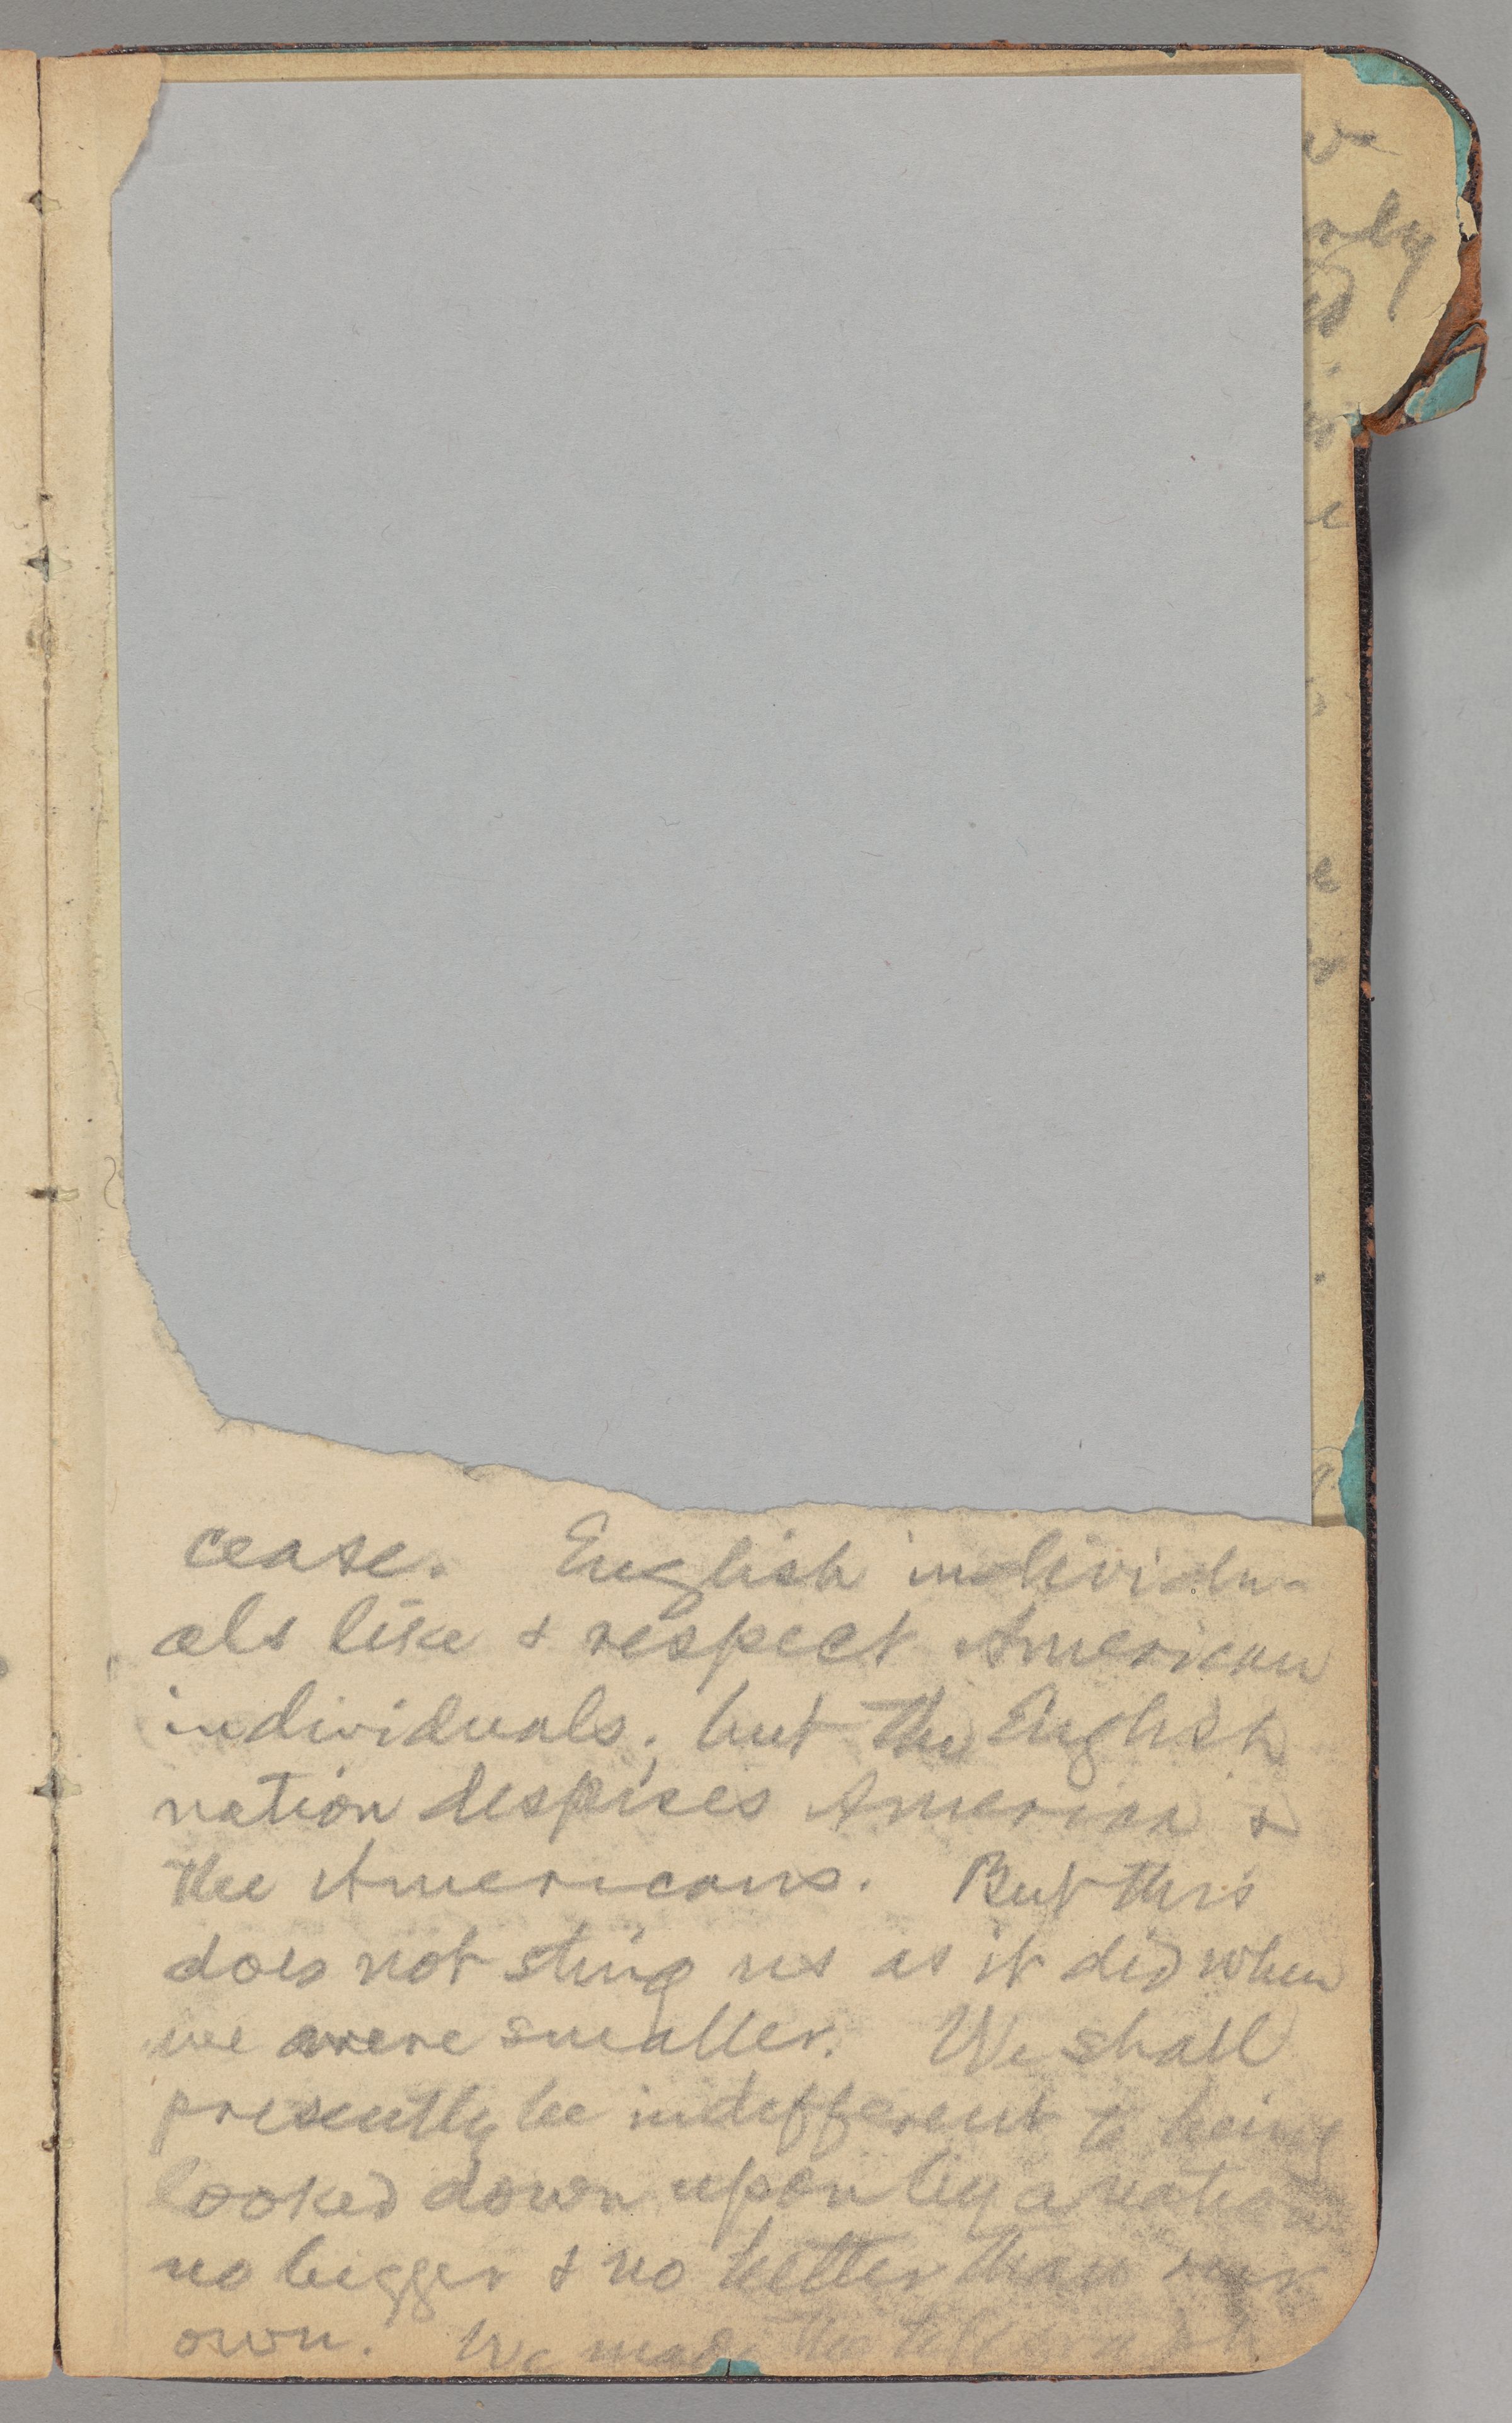 cease. English individu-
als like & respect American
individuals; but the English
nation despises America &
the Americans. But this
does not sting us as it did when
we were smaller. We shall
presently be indifferent to being
looked down upon by a nation
no bigger & no better than our
own. We made the telegraph